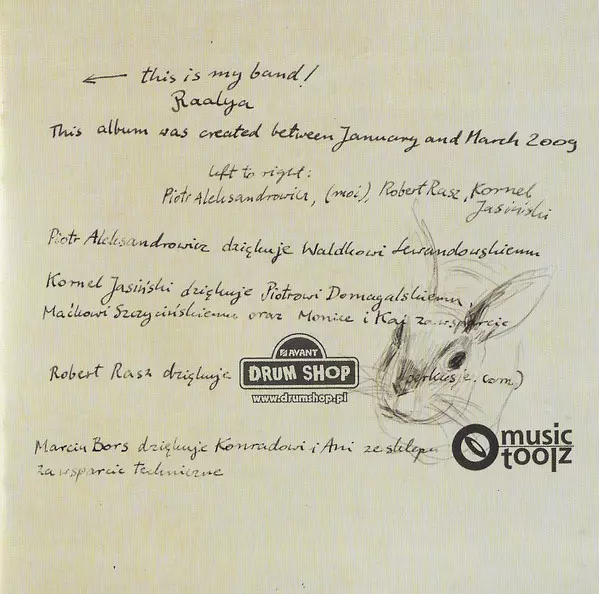 ← this is my band!
Raalya
This album was created between January and March 2009
left to right:
Piotr Aleksandrowicz, (moi), Robert Rasz, Kornel
Jasiński
Piotr Aleksandrowicz dziękuje Waldkowi Lewandowskiemu
Kornel Jasiński dziękuje Piotrowi Domagalskiemu,
Maćkowi Szczycińskiemu oraz Monice i Kai za wsparcie
AVANT
Robert Rasz dziękuje DRUM SHOP (perkusje.com)
www.drumshop.pl
Marcin Bors dziękuje Konradowi i Ani ze sklepu music toolz
za wsparcie techniczne